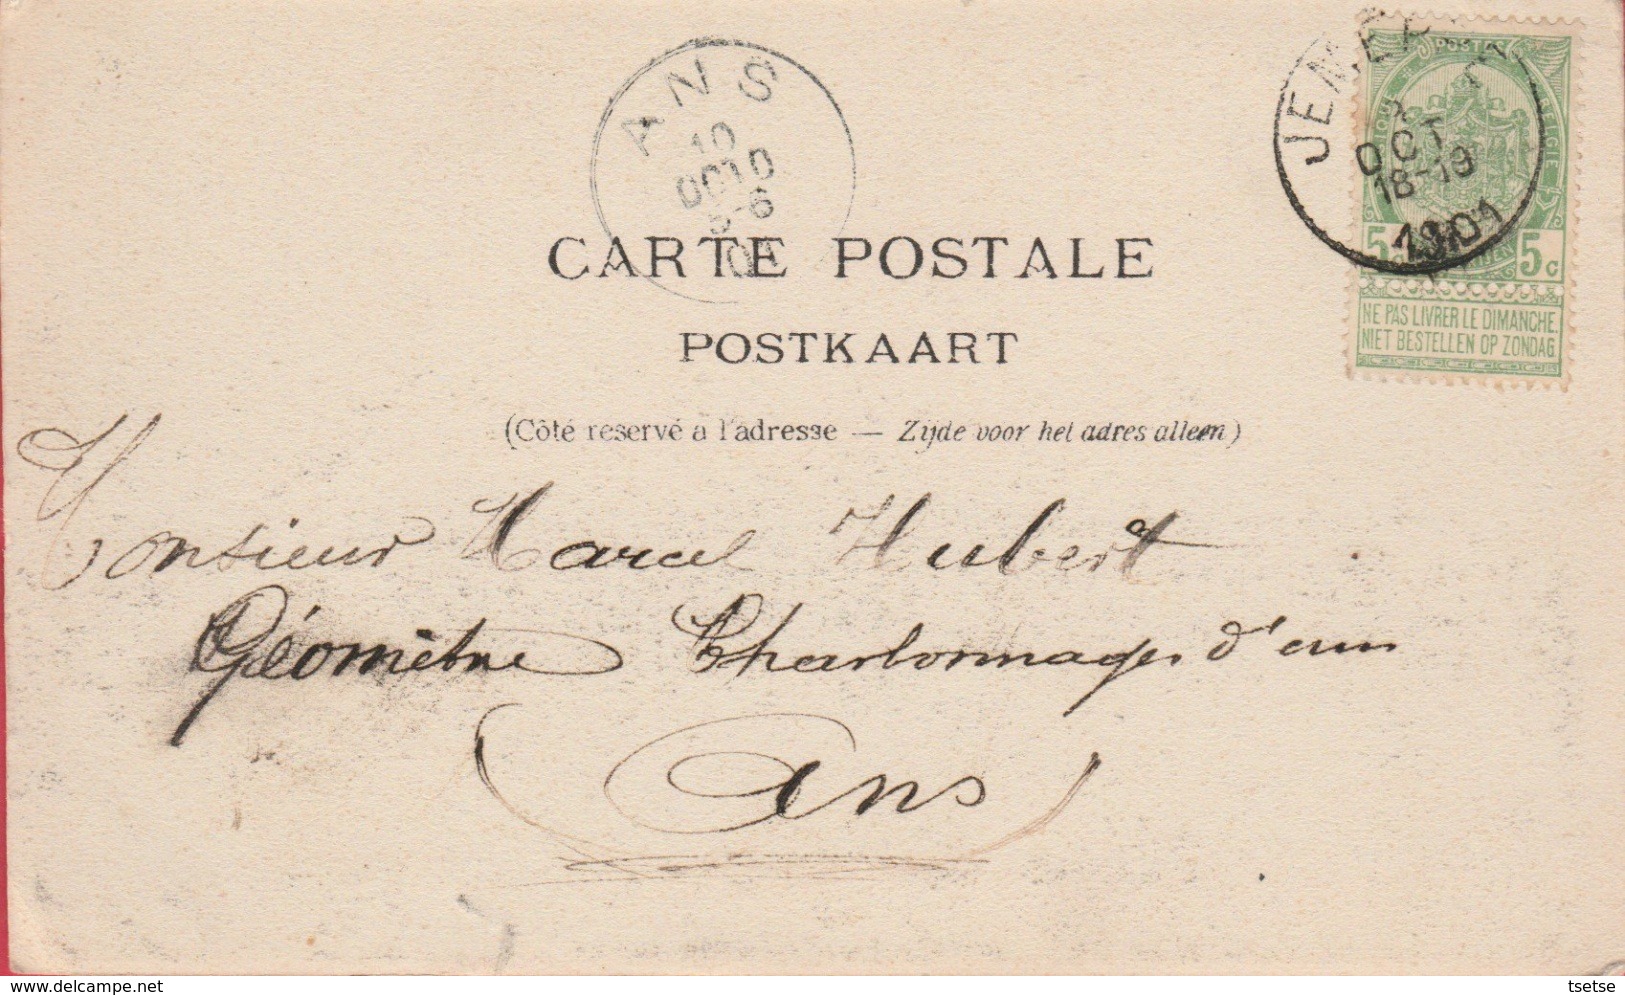 ANS
10
OCT
5-6
JEMEPPE
OCT
18-19
1901
POSTES
5 c 5 c
NE PAS LIVRER LE DIMANCHE.
NIET BESTELLEN OP ZONDAG
CARTE POSTALE
POSTKAART
(Côté reservé a l'adresse — Zijde voor het adres alleen)
Monsieur Marcel Hubert
Géomètre Charbonnages d'
Ans
delcampe.net
tsetse